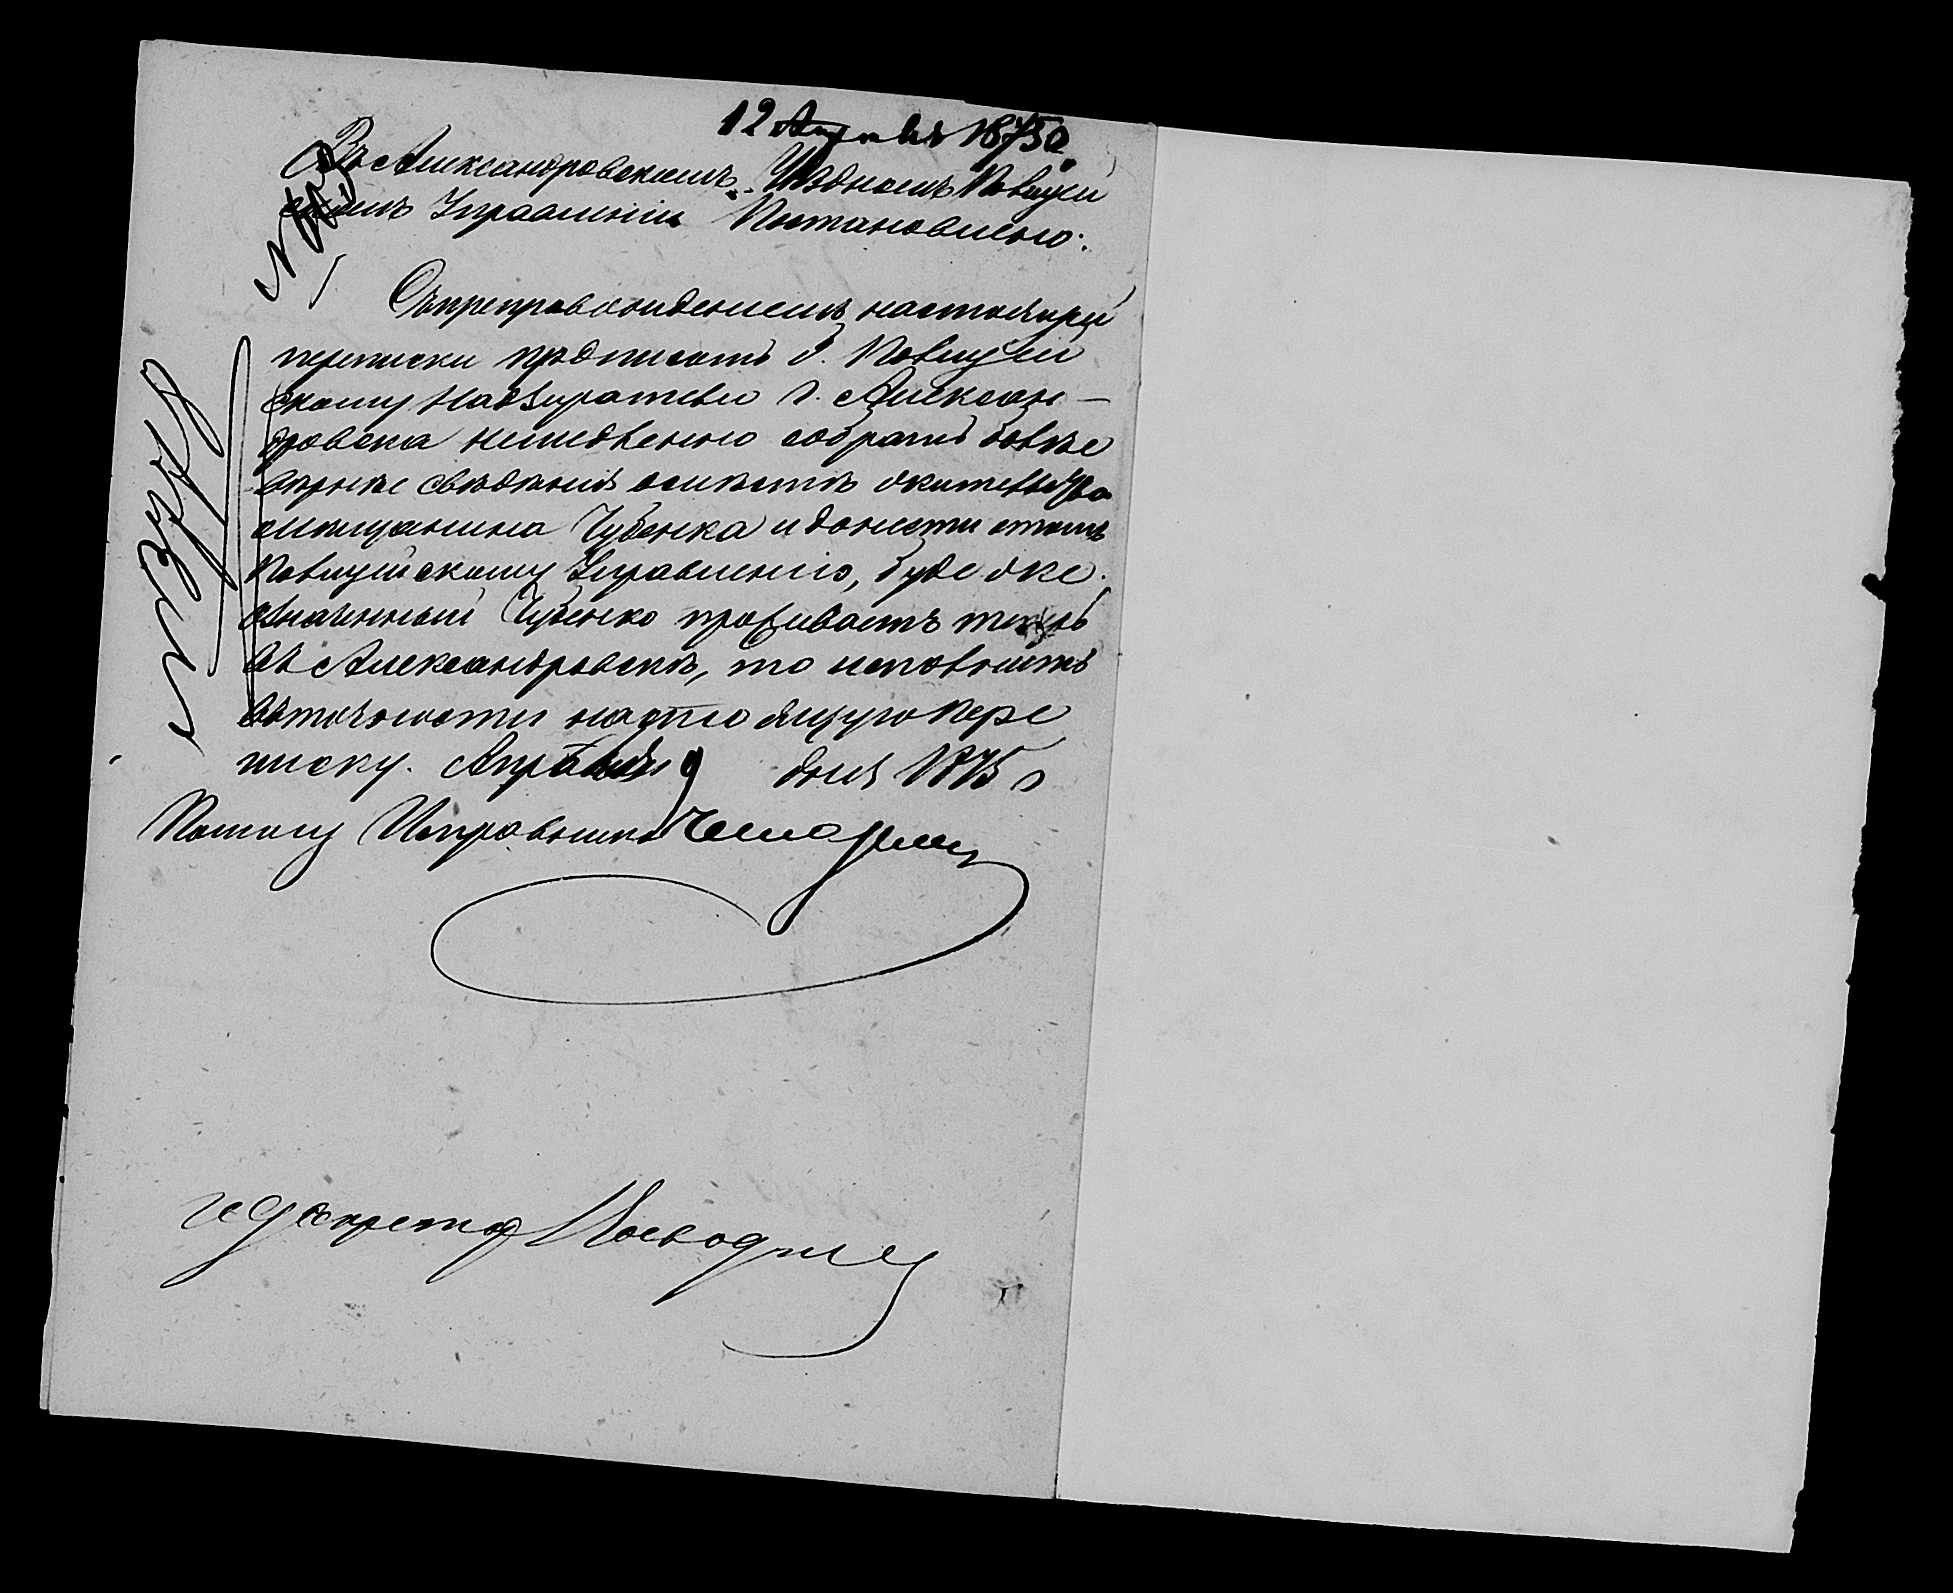 12 Апреля 1875 г.
Въ Александровскомъ Уѣздномъ Полицей
скомъ Управленiи Постановлено:
Съ препровожденiемъ настоящей
переписки предписать г. Полицей
скому Надзирателю г. Алексан-
дровска немедленно собрать
свѣденiя жительства
мещанина Чубенка и донести о томъ
Полицейскому Управленiю, буде же
означенный Чубенко проживаетъ теперь
въ Александровскѣ, то исполнить
въ точности настоящую пере
писку. Апреля 9 дня 1875 г
Помощ Исправника
Секретар